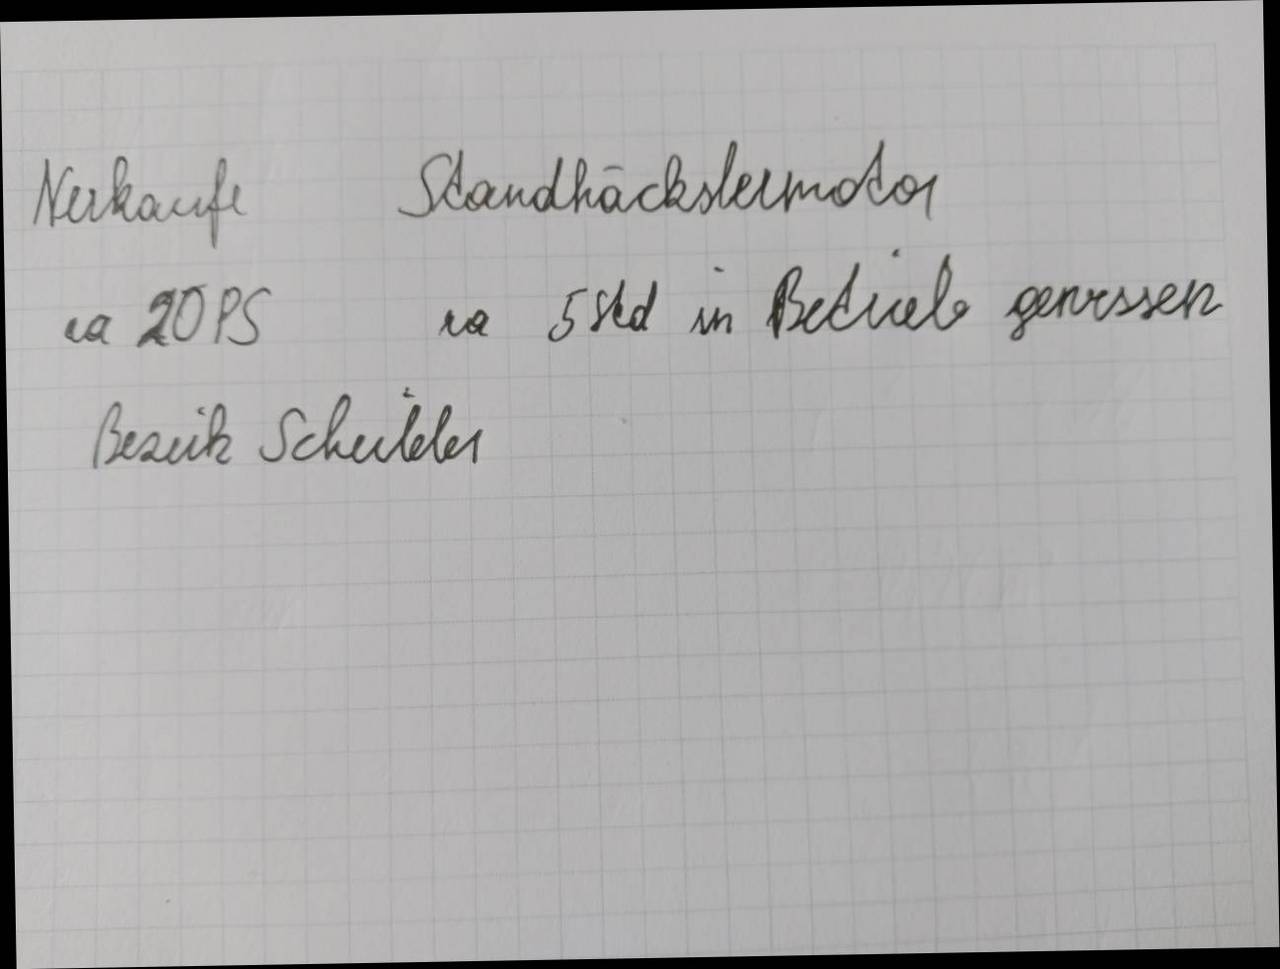 Verkaufe Standhäckslermotor
ca 20PS ca 5 Std in Betrieb gewessen
Bezirk